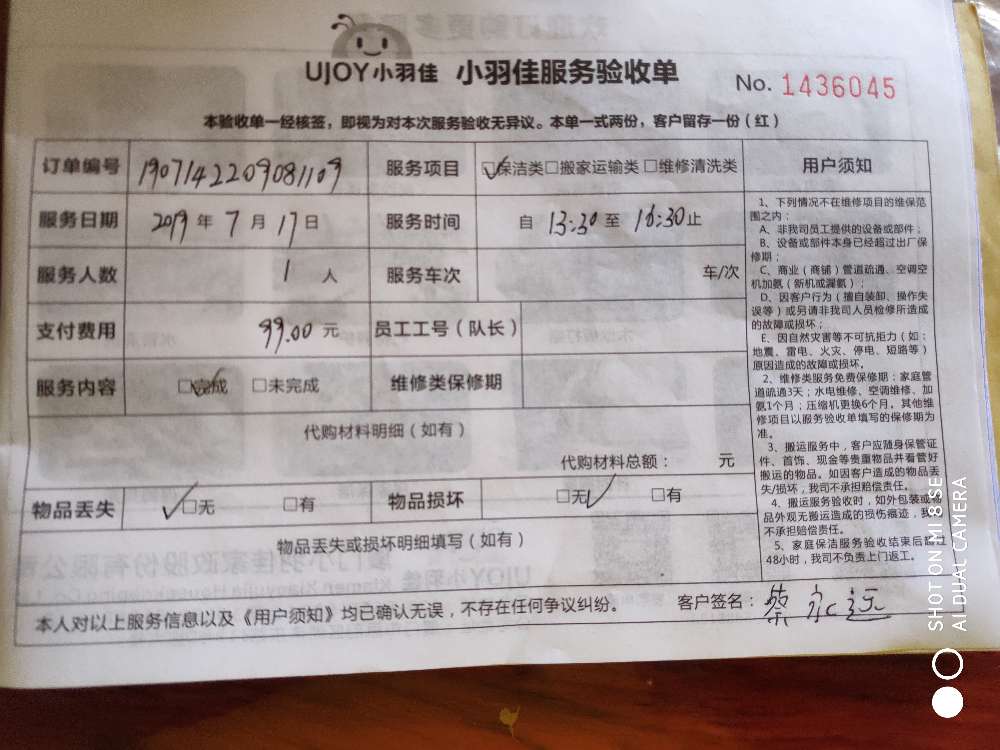 UJOY小羽佳 小羽佳服务验收单
No. 1436045
本验收单一经核签，即视为对本次服务验收无异议。本单一式两份，客户留存一份（红）
订单编号 1907142209081109 服务项目 □保洁类□搬家运输类□维修清洗类
服务日期 2019 年 7 月 17 日 服务时间 自 13:30 至 16:30 止
服务人数 1 人 服务车次 车/次
支付费用 99.00 元 员工工号（队长）
服务内容 □完成 □未完成 维修类保修期
代购材料明细（如有）
代购材料总额： 元
物品丢失 □无 □有 物品损坏 □无 □有
物品丢失或损坏明细填写（如有）
本人对以上服务信息以及《用户须知》均已确认无误，不存在任何争议纠纷。 客户签名：蔡永远
用户须知
1、下列情况不在维修项目的维保范
围之内：
A、非我司员工提供的设备或部件；
B、设备或部件本身已经超过出厂保
修期；
C、商业（商铺）管道疏通、空调空
机加氨（新机或漏氨）；
D、因客户行为（擅自装卸、操作失
误等）或另请非我司人员检修所造成
的故障或损坏；
E、因自然灾害等不可抗拒力（如：
地震、雷电、火灾、停电、短路等）
原因造成的故障或损坏。
2、维修类服务免费保修期：家庭管
道疏通3天；水电维修、空调维修、加
氨1个月；压缩机更换6个月。其他维
修项目以服务验收单填写的保修期为
准。
3、搬运服务中，客户应随身保管证
件、首饰、现金等贵重物品并看管好
搬运的物品。如因客户造成的物品丢
失/损坏，我司不承担赔偿责任。
4、搬运服务验收时，如外包装或物
品外观无搬运造成的损伤痕迹，我
不承担赔偿责任。
5、家庭保洁服务验收结束后超过
48小时，我司不负责上门返工。
SHOT ON MI 8 SE
AI DUAL CAMERA